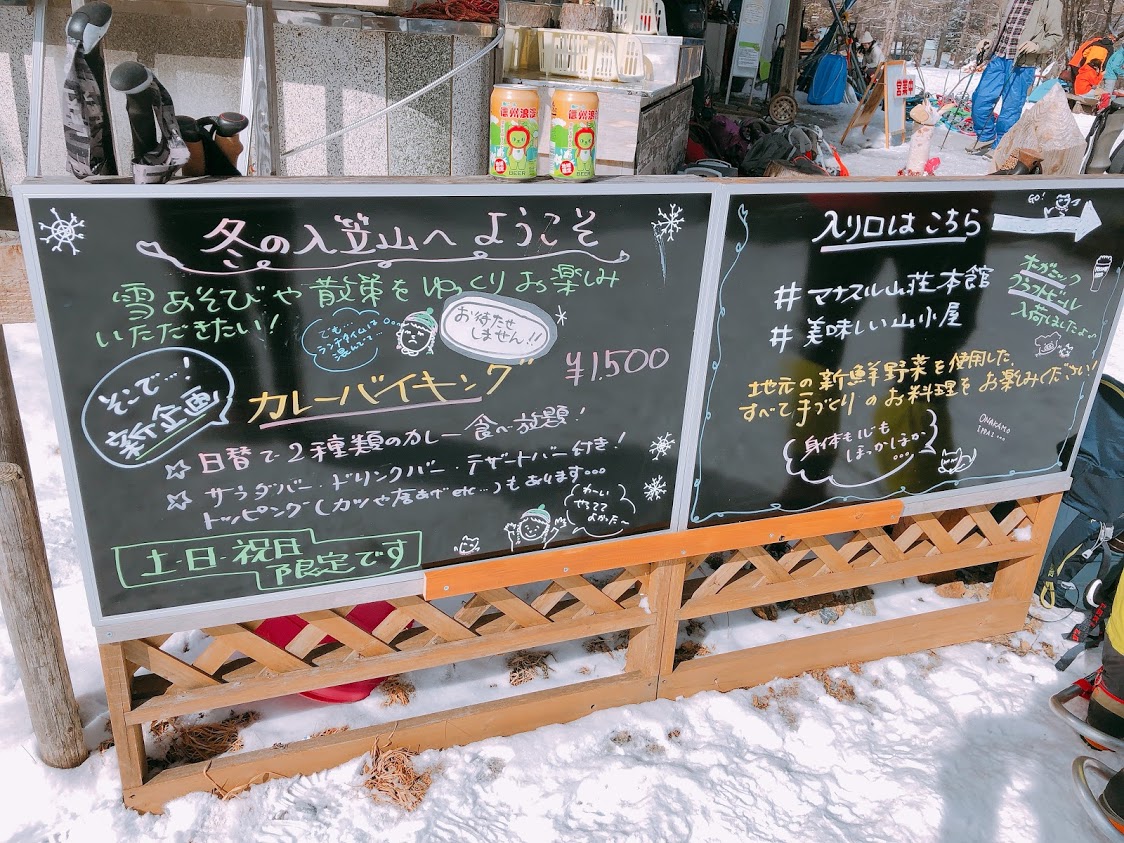 冬の入笠山へ ようこそ
雪あそびや散策をゆっくりお楽しみ
いただきたい!
でも…
ランチタイムは
混んでて…
お待たせ
しません!!
そこで…!
新企画
カレーバイキング
¥1,500
☆ 日替で2種類のカレー 食べ放題!
☆ サラダバー・ドリンクバー・デザートバー付き!
トッピング(カツや唐あげetc…)もあります…
土・日・祝日
限定です
わーい
せってて
よかった~
入り口は こちら
GO!
#マナスル山荘本館
#美味しい山小屋
クラフトビール
入荷しましたよ♪
地元の新鮮野菜を使用した、
すべて手づくりのお料理をお楽しみください!
身体も心も
ほっかほか
ONAKAMO
IPPAI...
信州浪漫
BEER
信州浪漫
BEER
営業中